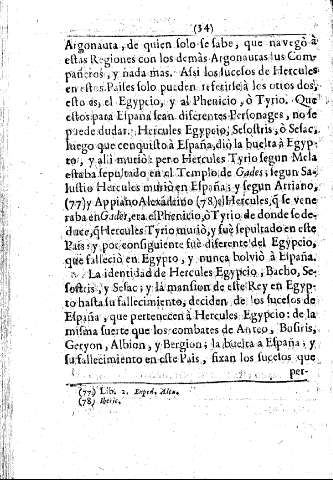 (34)
Argonauta, de quien solo se sabe, que navegò à
estas Regiones con los demàs Argonautas sus Com-
pañeros, y nada mas. Asi los sucesos de Hercules
en estos Paises solo pueden referirse à los otros dos,
esto es, el Egypcio, y al Phenicio, ò Tyrio. Que
estos para España sean diferentes Personages, no se
puede dudar. Hercules Egypcio, Sesostris, ò Sesac,
luego que conquistò à España, diò la buelta à Egyp-
to, y allì muriò: pero Hercules Tyrio segun Mela
estaba sepultado en el Templo de Gades; segun Sa-
lustio Hercules muriò en España; y segun Arriano,
(77) y Appiano Alexandrino (78) el Hercules, q̃ se vene
raba en Gades, era el Phenicio, ò Tyrio de donde se de-
duce, q̃ Hercules Tyrio muriò, y fuè sepultado en este
Pais: y por consiguiente fuè diferente del Egypcio,
que falleciò en Egypto, y nunca bolviò à España.
La identidad de Hercules Egypcio, Bacho, Se-
sostris, y Sesac; y la mansion de este Rey en Egyp-
to hasta su fallecimiento, deciden de los sucesos de
España, que pertenecen à Hercules Egypcio: de la
misma suerte que los combates de Anteo, Busiris,
Geryon, Albion, y Bergion; la buelta à España; y
su fallecimiento en este Pais, fixan los sucesos que
per-
(77) Lib. 2. Exped. Alex.
(78) Iberic.